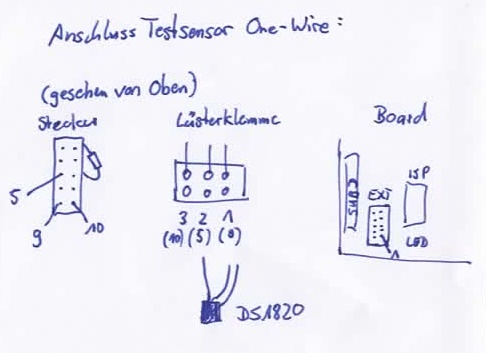 Anschluss Testsensor One-Wire:
(gesehen von Oben)
Stecker
Lüsterklemme
Board
5
9
10
3 2 1
(10) (5) (9)
DS1820
EXT
ISP
LED
1